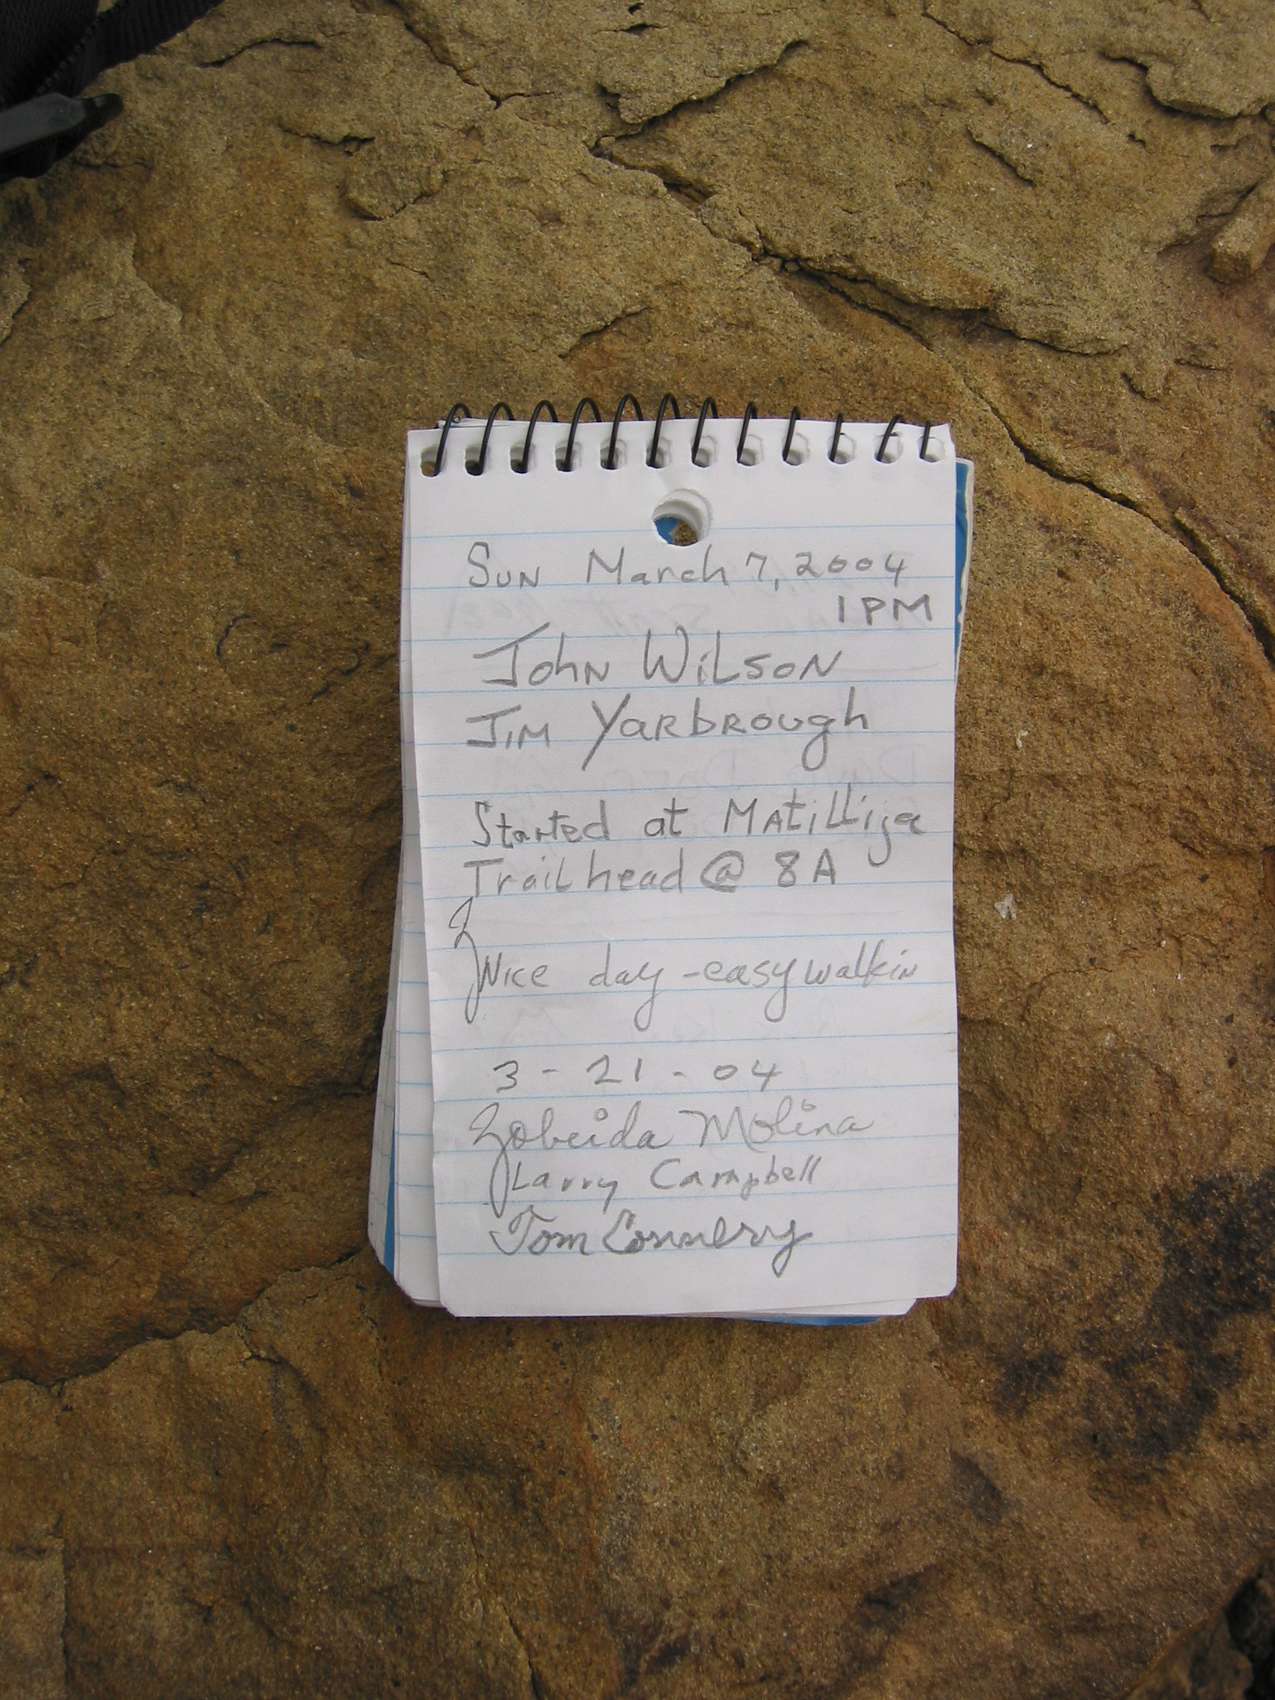 Sun March 7, 2004
1 PM
John Wilson
Jim Yarbrough
Started at Matillija
Trailhead @ 8A
Nice day - easy walkin
3-21-04
Zobeida Molina
Larry Campbell
Tom Connery